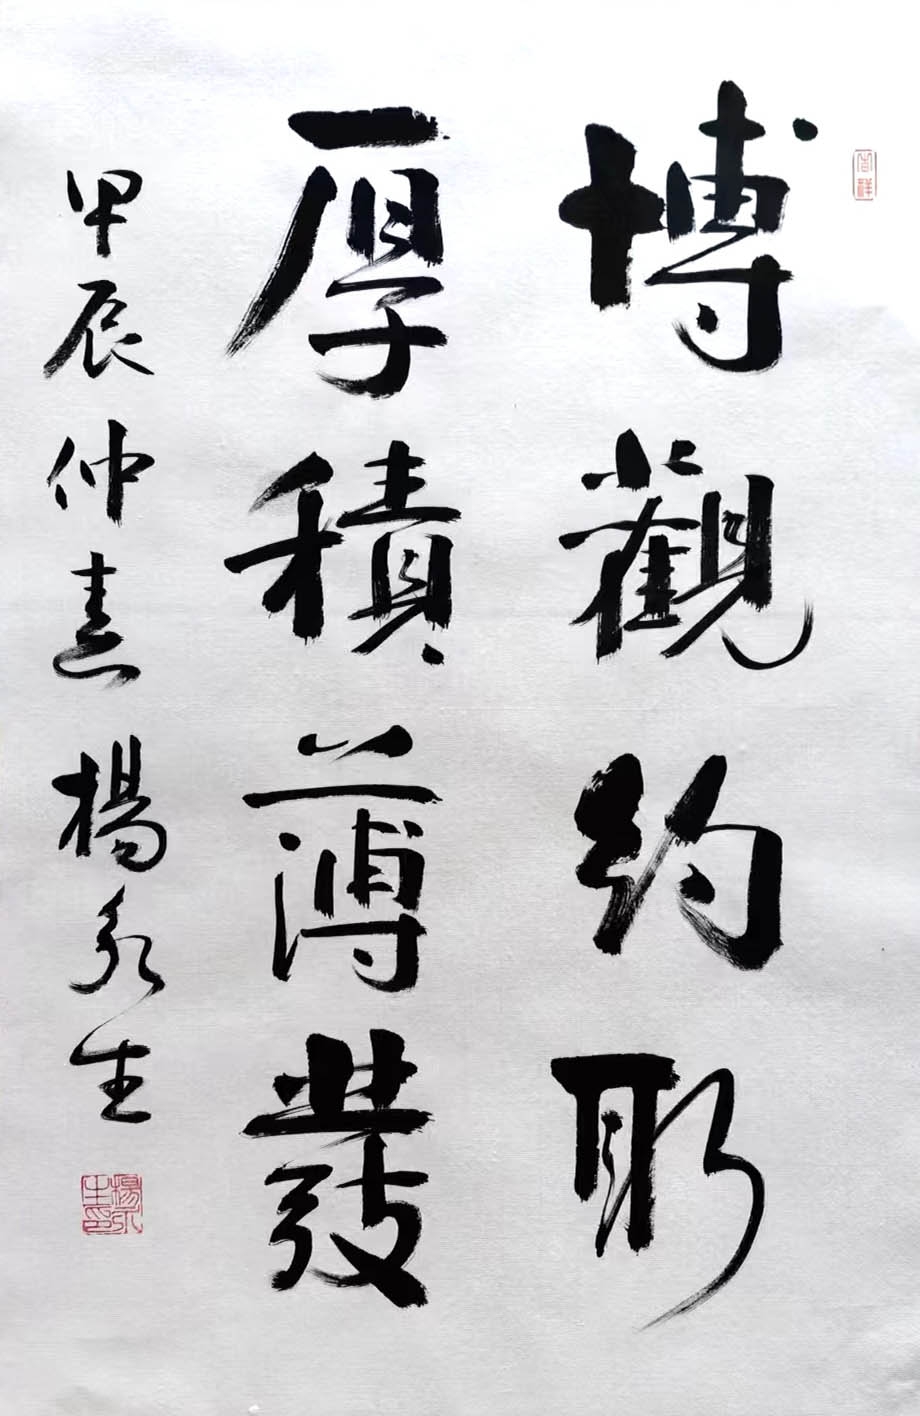 博觀約取
厚積薄發
甲辰仲 楊永生
吉祥
楊永生印